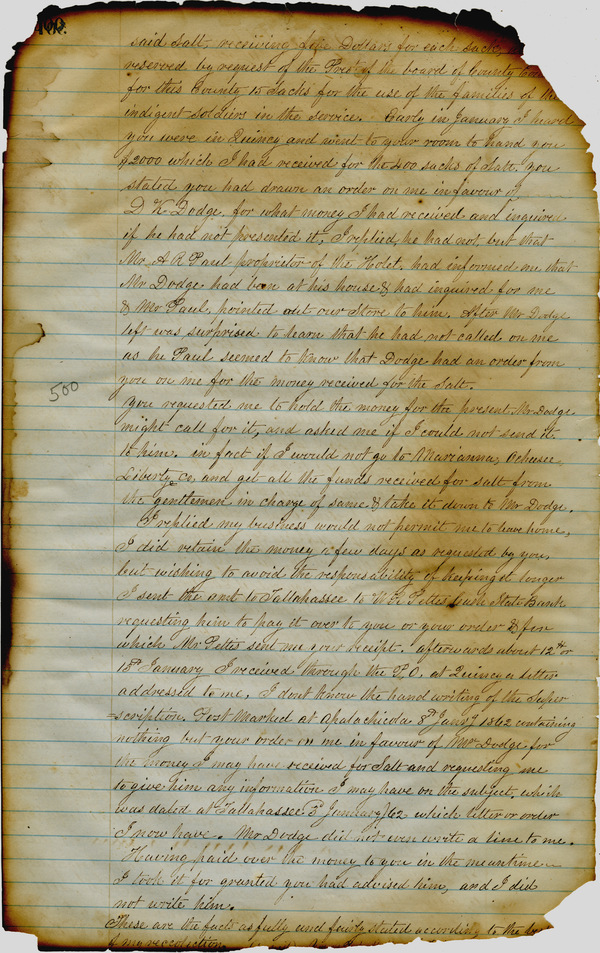 100.
said Salt, receiving five Dollars for each sack,
reserved by request of the Prest of the board of County
for this County 15 Sacks for the use of the families of the
indigent soldiers in the service. Early in January I heard
you were in Quincy and went to your room to hand you
$2000 which I had received for the 400 sacks of Salt. You
stated you had drawn an order on me in favour of
D. K. Dodge, for what money I had received and inquired
if he had not presented it, I replied, he had not, but that
Mr. A R Paul proprietor of the Hotel, had informed me that
Mr Dodge had been at his house & had inquired for me
& Mr Paul, pointed out our Store to him. After Mr Dodge
left was surprised to learn that he had not called on me
as he Paul seemed to know that Dodge had an order from
you on me for the money received for the Salt.
500
You requested me to hold the money for the present Mr Dodge
might call for it, and asked me if I could not send it
to him. in fact if I would not go to Marianna, Ochesee
Liberty Co, and get all the funds received for salt from
the gentlemen in charge of same & take it down to Mr Dodge.
I replied my business would not permit me to leave home,
I did retain the money a few days as requested by you,
but wishing to avoid the responsability of keeping it longer
I sent the amt to Tallahassee to W. R. Pettes Cash State Bank
requesting him to pay it over to you or your order & for
which Mr Pettes sent me your receipt. afterwards about 12th or
15th January I received through the P.O. at Quincy a letter
addressed to me, I dont know the hand writing of the Super
=scription, Post Marked at Apalachicola 8th Jany 1862 containing
nothing but your order on me in favour of Mr Dodge for
the money I may have received for Salt and requesting me
to give him any information I may have on the subject. which
was dated at Tallahassee 3d January/62 which letter or order
I now have. Mr Dodge did not even write a line to me.
Having paid over the money to you in the meantime
I took it for granted you had advised him, and I did
not write him.
These are the facts as fully and fairly stated according to the
of my recollection.